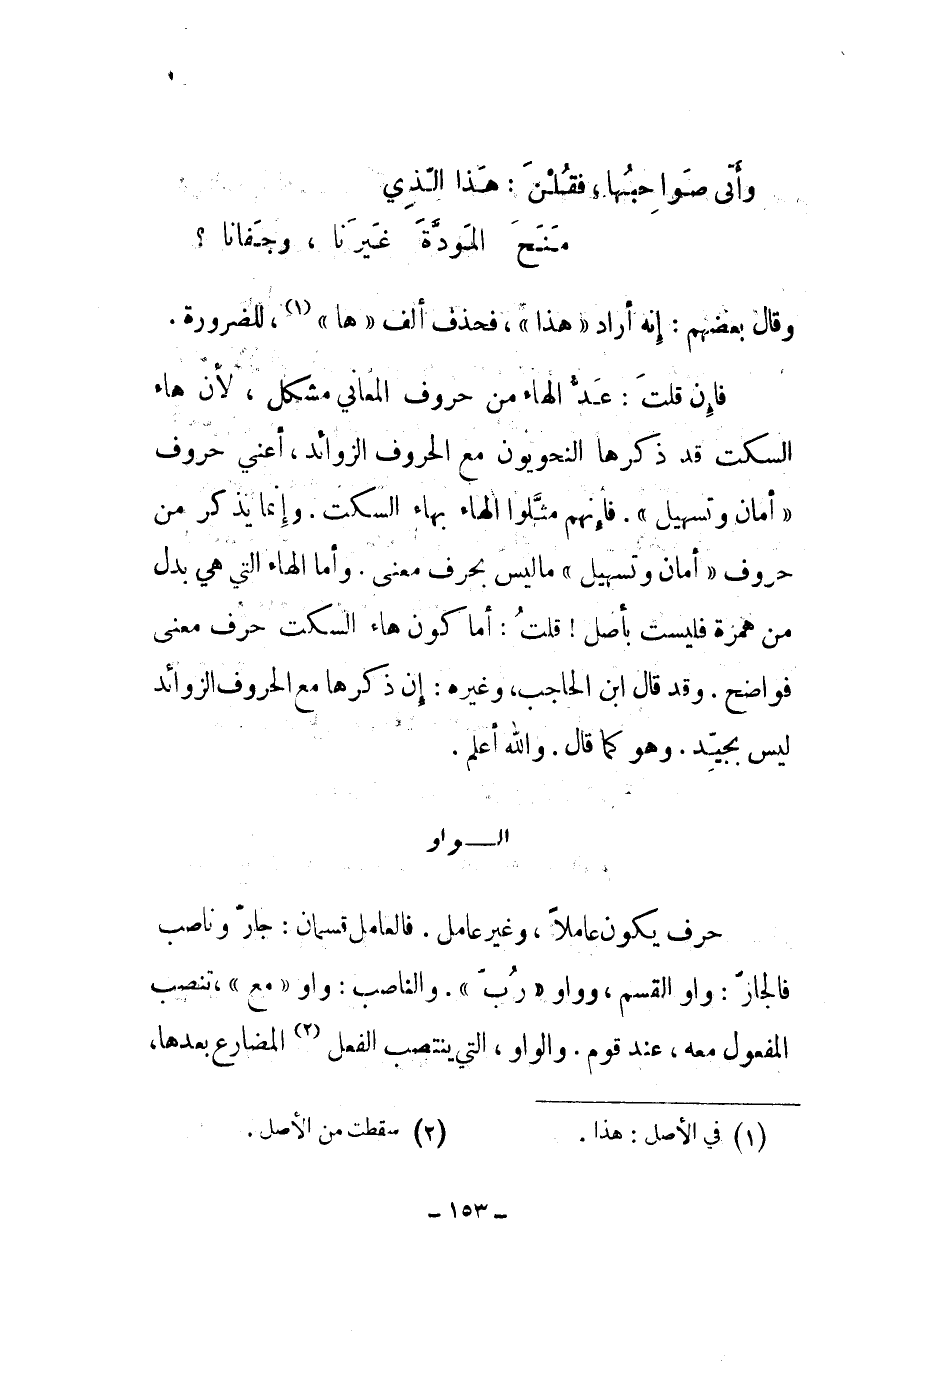 وأتى صَوَاحِبُها، فقُلْنَ : هَذا الّذِي
مَنَحَ المَودَّةَ غَيرَنا ، وجَفانا ؟
وقال بعضهم : إنه أراد « هذا » ، فحذف ألف « ها » (١) ، للضرورة .
فإن قلتَ : عَدُّ الهاء من حروف المعاني مشكل ، لأن هاء
السكت قد ذكرها النحويون مع الحروف الزوائد ، أعني حروف
« أمان وتسهيل » . فإنهم مثَّلوا الهاء بهاء السكت . وإنما يذكر من
حروف « أمان وتسهيل » ماليس بحرف معنى . وأما الهاء التي هي بدل
من همزة فليست بأصل ! قلتُ : أما كون هاء السكت حرف معنى
فواضح . وقد قال ابن الحاجب، وغيره : إن ذكرها مع الحروف الزوائد
ليس بجيّد . وهو كما قال . والله أعلم .
الـــواو
حرف يكون عاملاً ، وغير عامل . فالعامل قسمان : جارّ وناصب
فالجارّ : واو القسم ، وواو « رُبَّ » . والناصب : واو « مع » ، تنصب
المفعول معه ، عند قوم . والواو ، التي ينتصب الفعل (٢) المضارع بعدها،
(١) في الأصل : هذا . (٢) سقطت من الأصل .
ـ ١٥٣ ـ